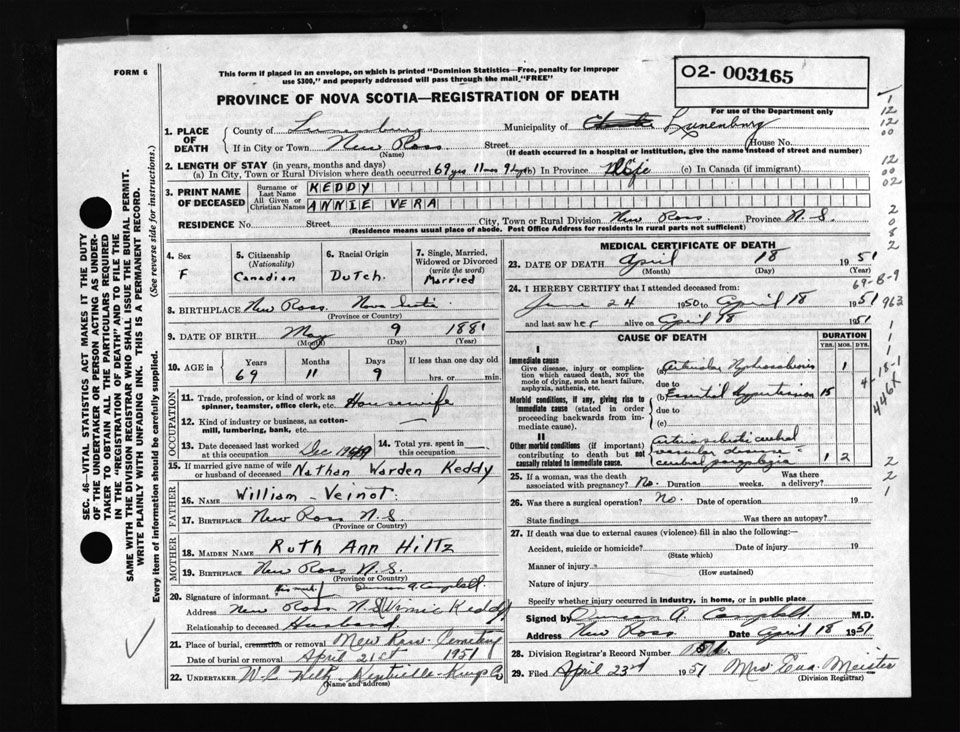 FORM 6
This form if placed in an envelope, on which is printed "Dominion Statistics—Free, penalty for improper
use $300," and properly addressed will pass through the mail "FREE"
O2- 003165
For use of the Department only
PROVINCE OF NOVA SCOTIA—REGISTRATION OF DEATH
SEC. 46—VITAL STATISTICS ACT MAKES IT THE DUTY
OF THE UNDERTAKER OR PERSON ACTING AS UNDER-
TAKER TO OBTAIN ALL THE PARTICULARS REQUIRED
IN THE "REGISTRATION OF DEATH" AND TO FILE THE
SAME WITH THE DIVISION REGISTRAR WHO SHALL ISSUE THE BURIAL PERMIT.
WRITE PLAINLY WITH UNFADING INK. THIS IS A PERMANENT RECORD.
Every item of information should be carefully supplied. (See reverse side for instructions.)
1. PLACE OF DEATH
County of Lunenburg Municipality of Lunenburg
If in City or Town New Ross (Name) Street House No.
(If death occurred in a hospital or institution, give the name instead of street and number)
2. LENGTH OF STAY (in years, months and days)
(a) In City, Town or Rural Division where death occurred 69 yrs 11 mos 9 (b) In Province Life (c) In Canada (if immigrant)
3. PRINT NAME OF DECEASED
Surname or Last Name KEDDY
All Given or Christian Names ANNIE VERA
RESIDENCE No. Street City, Town or Rural Division New Ross Province N.S.
(Residence means usual place of abode. Post Office Address for residents in rural parts not sufficient)
4. Sex F
5. Citizenship (Nationality) Canadian
6. Racial Origin Dutch.
7. Single, Married, Widowed or Divorced (write the word) Married
8. BIRTHPLACE New Ross. Nova Scotia
(Province or Country)
9. DATE OF BIRTH May 9 1881
(Month) (Day) (Year)
10. AGE in Years Months Days If less than one day old
69 11 9 hrs. or min.
OCCUPATION
11. Trade, profession, or kind of work as
spinner, teamster, office clerk, etc. Housewife
12. Kind of industry or business, as cotton-
mill, lumbering, bank, etc. —
13. Date deceased last worked at this occupation Dec 1949
14. Total yrs. spent in this occupation —
15. If married give name of wife
or husband of deceased Nathan Worden Keddy
FATHER
16. NAME William - Veinot.
17. BIRTHPLACE New Ross N.S.
(Province or Country)
MOTHER
18. MAIDEN NAME Ruth Ann Hiltz
19. BIRTHPLACE New Ross N.S.
(Province or Country)
20. Signature of informant Duncan A. Campbell
Address New Ross N.S. Keddy
Relationship to deceased Husband
21. Place of burial, cremation or removal New Ross Cemetery
Date of burial or removal April 21st 1951
22. UNDERTAKER Kentville Kings Co
(Name and address)
MEDICAL CERTIFICATE OF DEATH
23. DATE OF DEATH April 18 1951
(Month) (Day) (Year)
24. I HEREBY CERTIFY that I attended deceased from:
June 24 1950 to April 18 1951
and last saw her alive on April 18 1951
CAUSE OF DEATH
DURATION
YRS. MOS. DYS.
I
Immediate cause
Give disease, injury or complica-
tion which caused death, NOT the
mode of dying, such as heart failure,
asphyxia, asthenia, etc.
(a) Arteriolar Nephrosclerosis 1
due to
(b) Essential Hypertension 15
due to
(c)
Morbid conditions, if any, giving rise to
immediate cause (stated in order
proceeding backwards from im-
mediate cause).
II
Other morbid conditions (if important)
contributing to death but not
causally related to immediate cause.
Arteriosclerotic cerebral
vascular disease -
cerebral 1 2
25. If a woman, was the death
associated with pregnancy? No. Duration weeks. Was there a delivery?
26. Was there a surgical operation? No. Date of operation 19
State findings Was there an autopsy?
27. If death was due to external causes (violence) fill in also the following:—
Accident, suicide or homicide? Date of injury 19
(State which)
Manner of injury
(How sustained)
Nature of injury
Specify whether injury occurred in industry, in home, or in public place
Signed by Duncan A Campbell M.D.
Address New Ross Date April 18 1951
28. Division Registrar's Record Number
29. Filed April 23rd 1951 Mrs Eva Meister
(Division Registrar)
1
12
12
00
12
00
02
2
0
8
2
69-B-9
963
1
1
1
4-18-1
446X
2
2
1